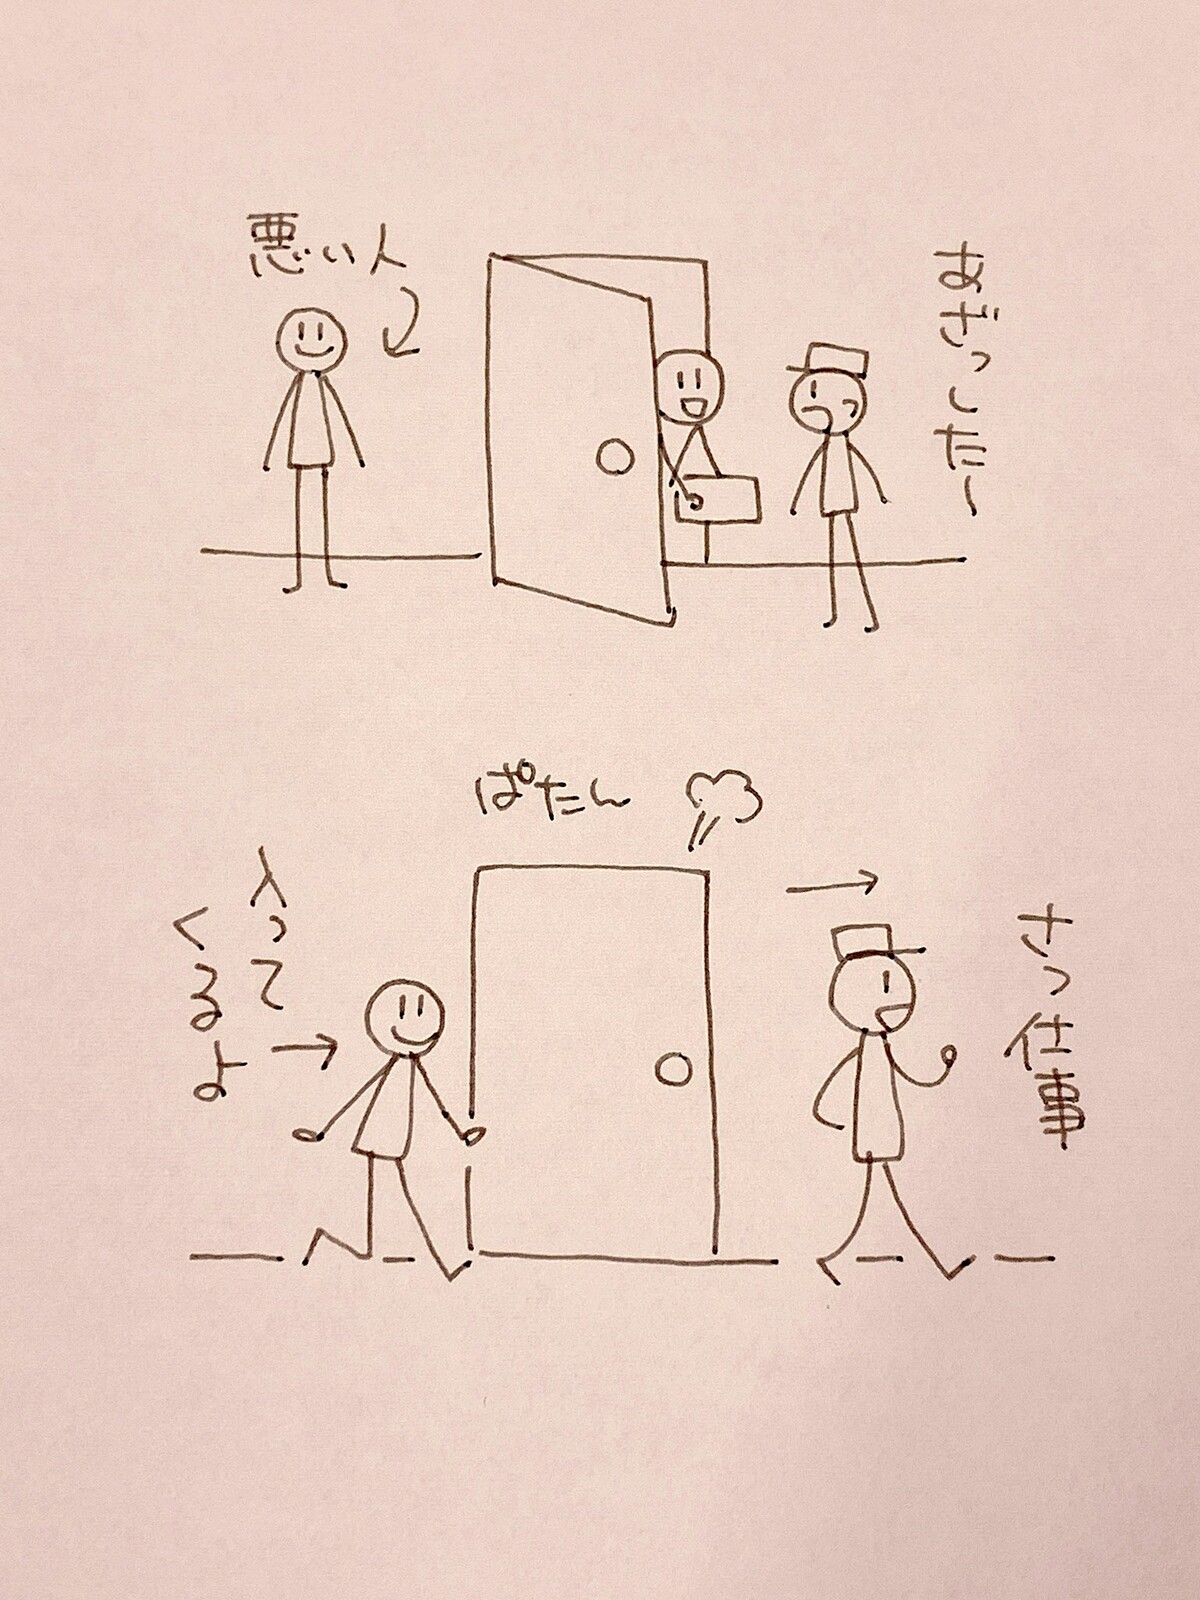 悪い人
あざっしたー
ぱたん
入って
くるよ
さっ仕事